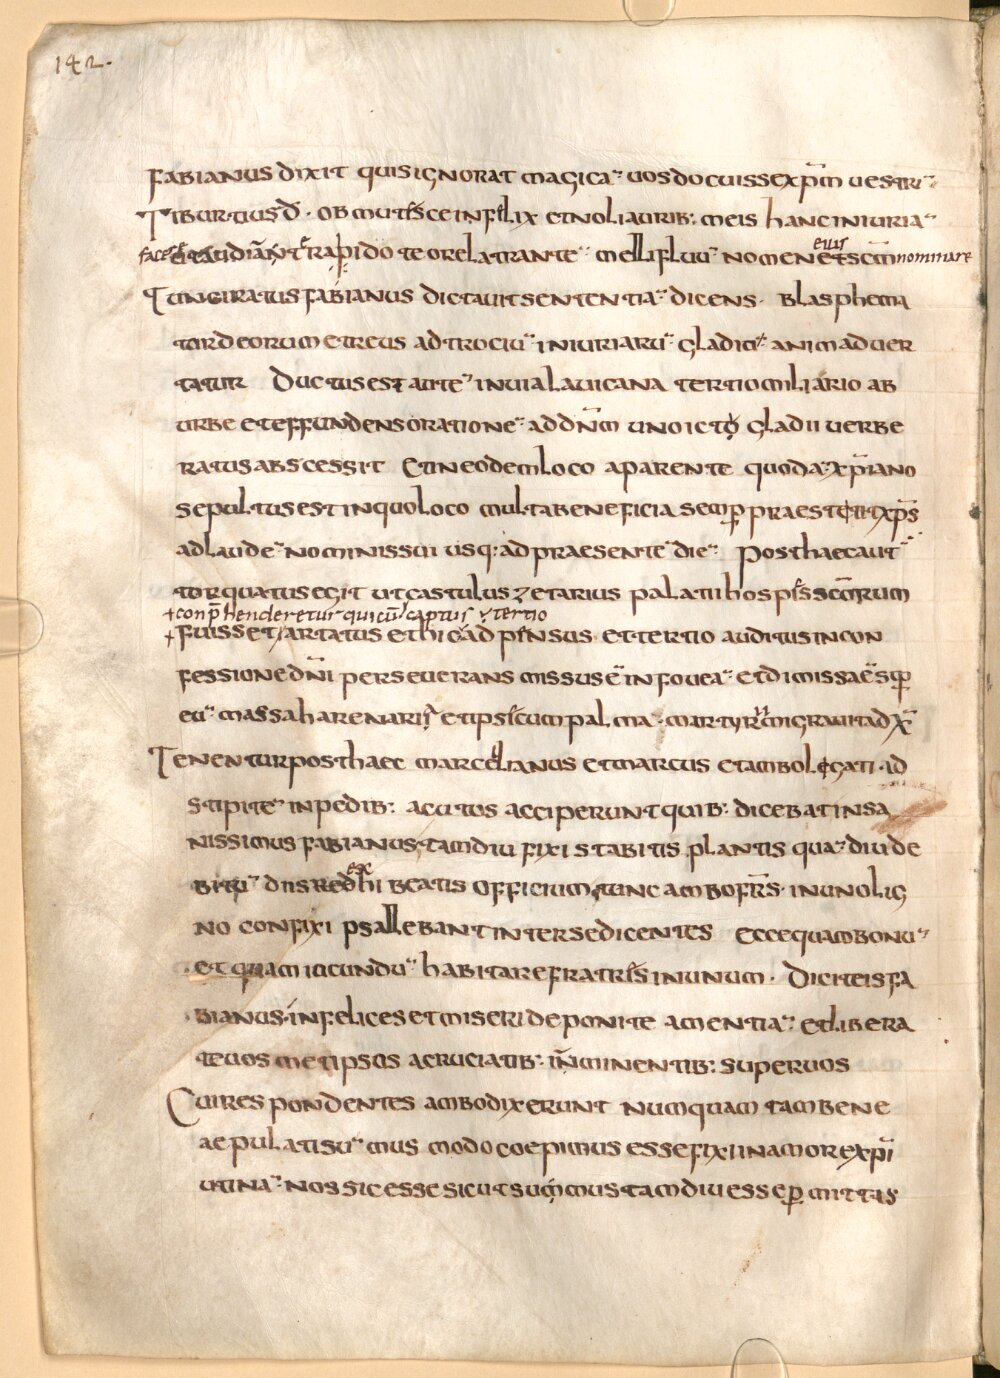 142.
FABIANUS DIXIT QUIS IGNORAT MAGICA¯ UOS DOCUISSE XP̄M UESTRU¯
TIBURTIUS D̄. OBMUTESCE INFELIX ET NOLI AURIB: MEIS HANC INIURIA¯
facere RAPIDO TE ORE LATRANTE¯ MELLIFLUU¯ NOMEN eius ET SC̄M nominare
TUNC IRATUS FABIANUS DICTAUIT SENTENTIA¯ DICENS. BLASPHEMA
TOR DEORUM ET REUS ADTROCIU¯ INIURIARU¯ GLADIO ANIMADUER
TATUR DUCTUS EST AUTE¯ IN UIA LAUICANA TERTIO MILIARIO AB
URBE ET EFFUNDENS ORATIONE¯ AD DN̄M UNO ICTO GLADII UERBE
RATUS ABSCESSIT ET IN EODEM LOCO APARENTE QUODA¯ XP̄IANO
SEPULTUS EST IN QUO LOCO MULTA BENEFICIA SEMP PRAESTET XP̄S
AD LAUDE¯ NOMINIS SUI USQ: AD PRAESENTE¯ DIE¯ POST HAEC AUT¯
TORQUATUS EGIT UT CASTULUS ZETARIUS PALATII HOSPES SC̄ORUM
+ conp̄henderetur qui cū captus & tertio
+ FUISSET ARTATUS ET HIC AD PENSUS ET TERTIO AUDITUS IN CON
FESSIONE DN̄I PERSEUERANS MISSUS Ē IN FOUEA¯ ET DIMISSA Ē SUP
EU¯ MASSA HARENARIA ET IPSE CUM PALMA MARTYRII MIGRAUIT AD XP̄M
TENENTUR POST HAEC MARCELLIANUS ET MARCUS ET AMBO LEGATI AD
STIPITE¯ IN PEDIB: ACUTOS ACCIPERUNT QUIB: DICEBAT INSA
NISSIMUS FABIANUS TAMDIU FIXI STABITIS PLANTIS QUA¯DIU DE
BITU¯ DIIS REDHIBEATIS OFFICIUM TUNC AMBO FR̄S IN UNO LIG
NO CONFIXI PSALLEBANT INTER SE DICENTES ECCE QUAM BONU¯
ET QUAM IUCUNDU¯ HABITARE FRATRES IN UNUM. DICIT EIS FA
BIANUS INFELICES ET MISERI DEPONITE AMENTIA¯ ET LIBERA
TE UOS METIPSOS A CRUCIATIB: INMINENTIB: SUPER UOS
CUI RESPONDENTES AMBO DIXERUNT NUMQUAM TAM BENE
AEPULATI SU¯MUS MODO COEPIMUS ESSE FIXI IN AMORE XP̄I
UTINA¯ NOS SIC ESSE SICUT SUMMUS TAMDIU ESSE PERMITTAS